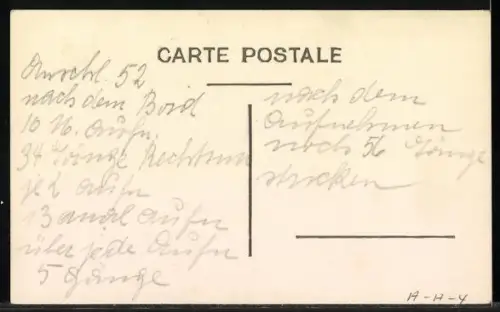 CARTE POSTALE
Anschl. 52
nach dem Bord
10 N. Aufn.
34 Gänge Rechtsum
je 2 Aufn
13 amal Aufn
über jede Aufn
5 Gänge
nach dem
Aufnehmen
noch 56 Gänge
stricken
A-A-4